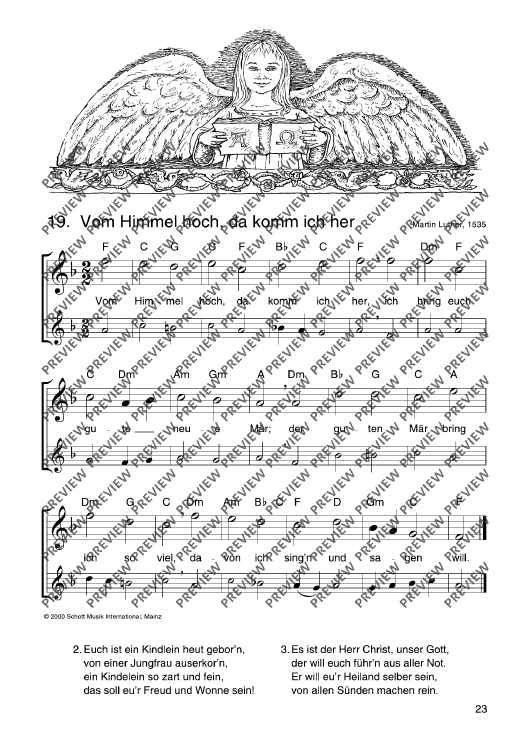 A Ω
19. Vom Himmel hoch, da komm ich her
Martin Luther, 1535
F C G G F B♭ C F Dm F
Vom Him - mel hoch, da komm ich her, ich bring euch
C Dm Am Gm A Dm B♭ G C A
gu - te neu - e Mär; der gu - ten Mär bring
Dm G C Dm Am B♭ C F D Gm C F
ich so viel, da - von ich sing'n und sa - gen will.
© 2000 Schott Musik International, Mainz
2. Euch ist ein Kindlein heut gebor'n,
von einer Jungfrau auserkor'n,
ein Kindelein so zart und fein,
das soll eu'r Freud und Wonne sein!
3. Es ist der Herr Christ, unser Gott,
der will euch führ'n aus aller Not.
Er will eu'r Heiland selber sein,
von allen Sünden machen rein.
23
PREVIEW